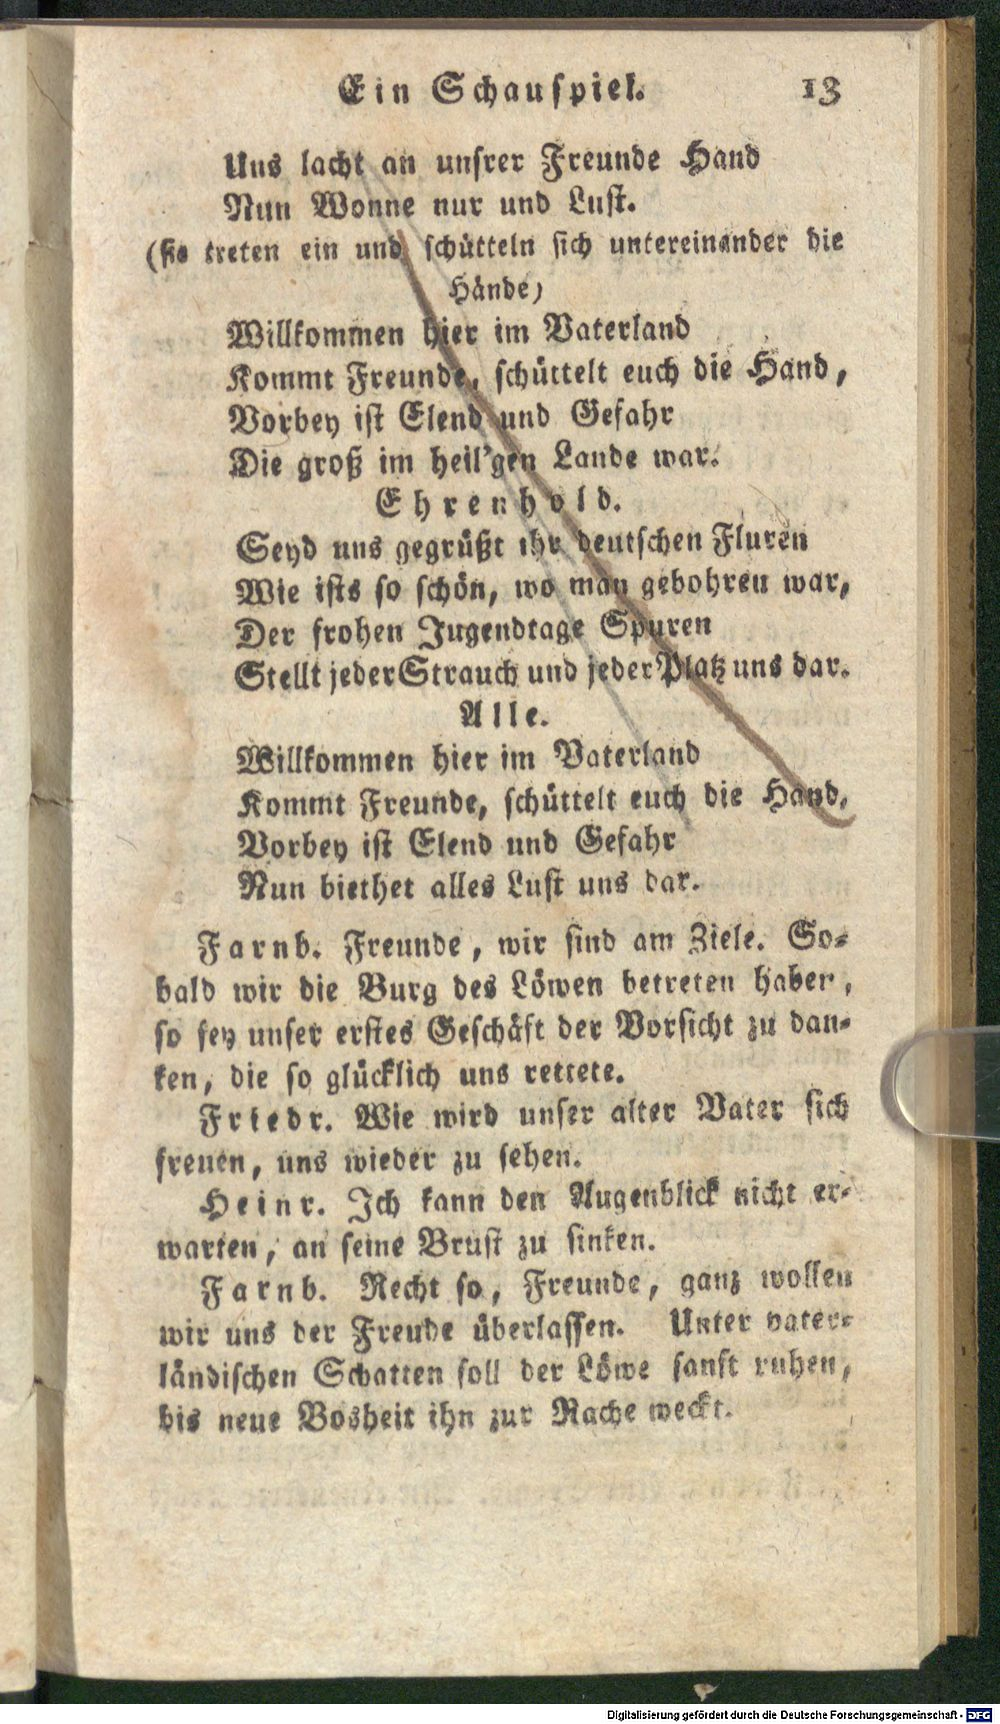 Ein Schauspiel. 13
Uns lacht an unsrer Freunde Hand
Nun Wonne nur und Lust.
(sie treten ein und schütteln sich untereinander die
Hände)
Willkommen hier im Vaterland
Kommt Freunde, schüttelt euch die Hand,
Vorbey ist Elend und Gefahr
Die groß im heil'gen Lande war.
Ehrenhold.
Seyd uns gegrüßt ihr deutschen Fluren
Wie ists so schön, wo man gebohren war,
Der frohen Jugendtage Spuren
Stellt jeder Strauch und jeder Platz uns dar.
Alle.
Willkommen hier im Vaterland
Kommt Freunde, schüttelt euch die Hand,
Vorbey ist Elend und Gefahr
Nun biethet alles Lust uns dar.
Farnb. Freunde, wir sind am Ziele. So-
bald wir die Burg des Löwen betreten haben,
so sey unser erstes Geschäft der Vorsicht zu dan-
ken, die so glücklich uns rettete.
Friedr. Wie wird unser alter Vater sich
freuen, uns wieder zu sehen.
Heinr. Ich kann den Augenblick nicht er-
warten, an seine Brust zu sinken.
Farnb. Recht so, Freunde, ganz wollen
wir uns der Freude überlassen. Unter vater-
ländischen Schatten soll der Löwe sanft ruhen,
bis neue Bosheit ihn zur Rache weckt.
Digitalisierung gefördert durch die Deutsche Forschungsgemeinschaft - DFG